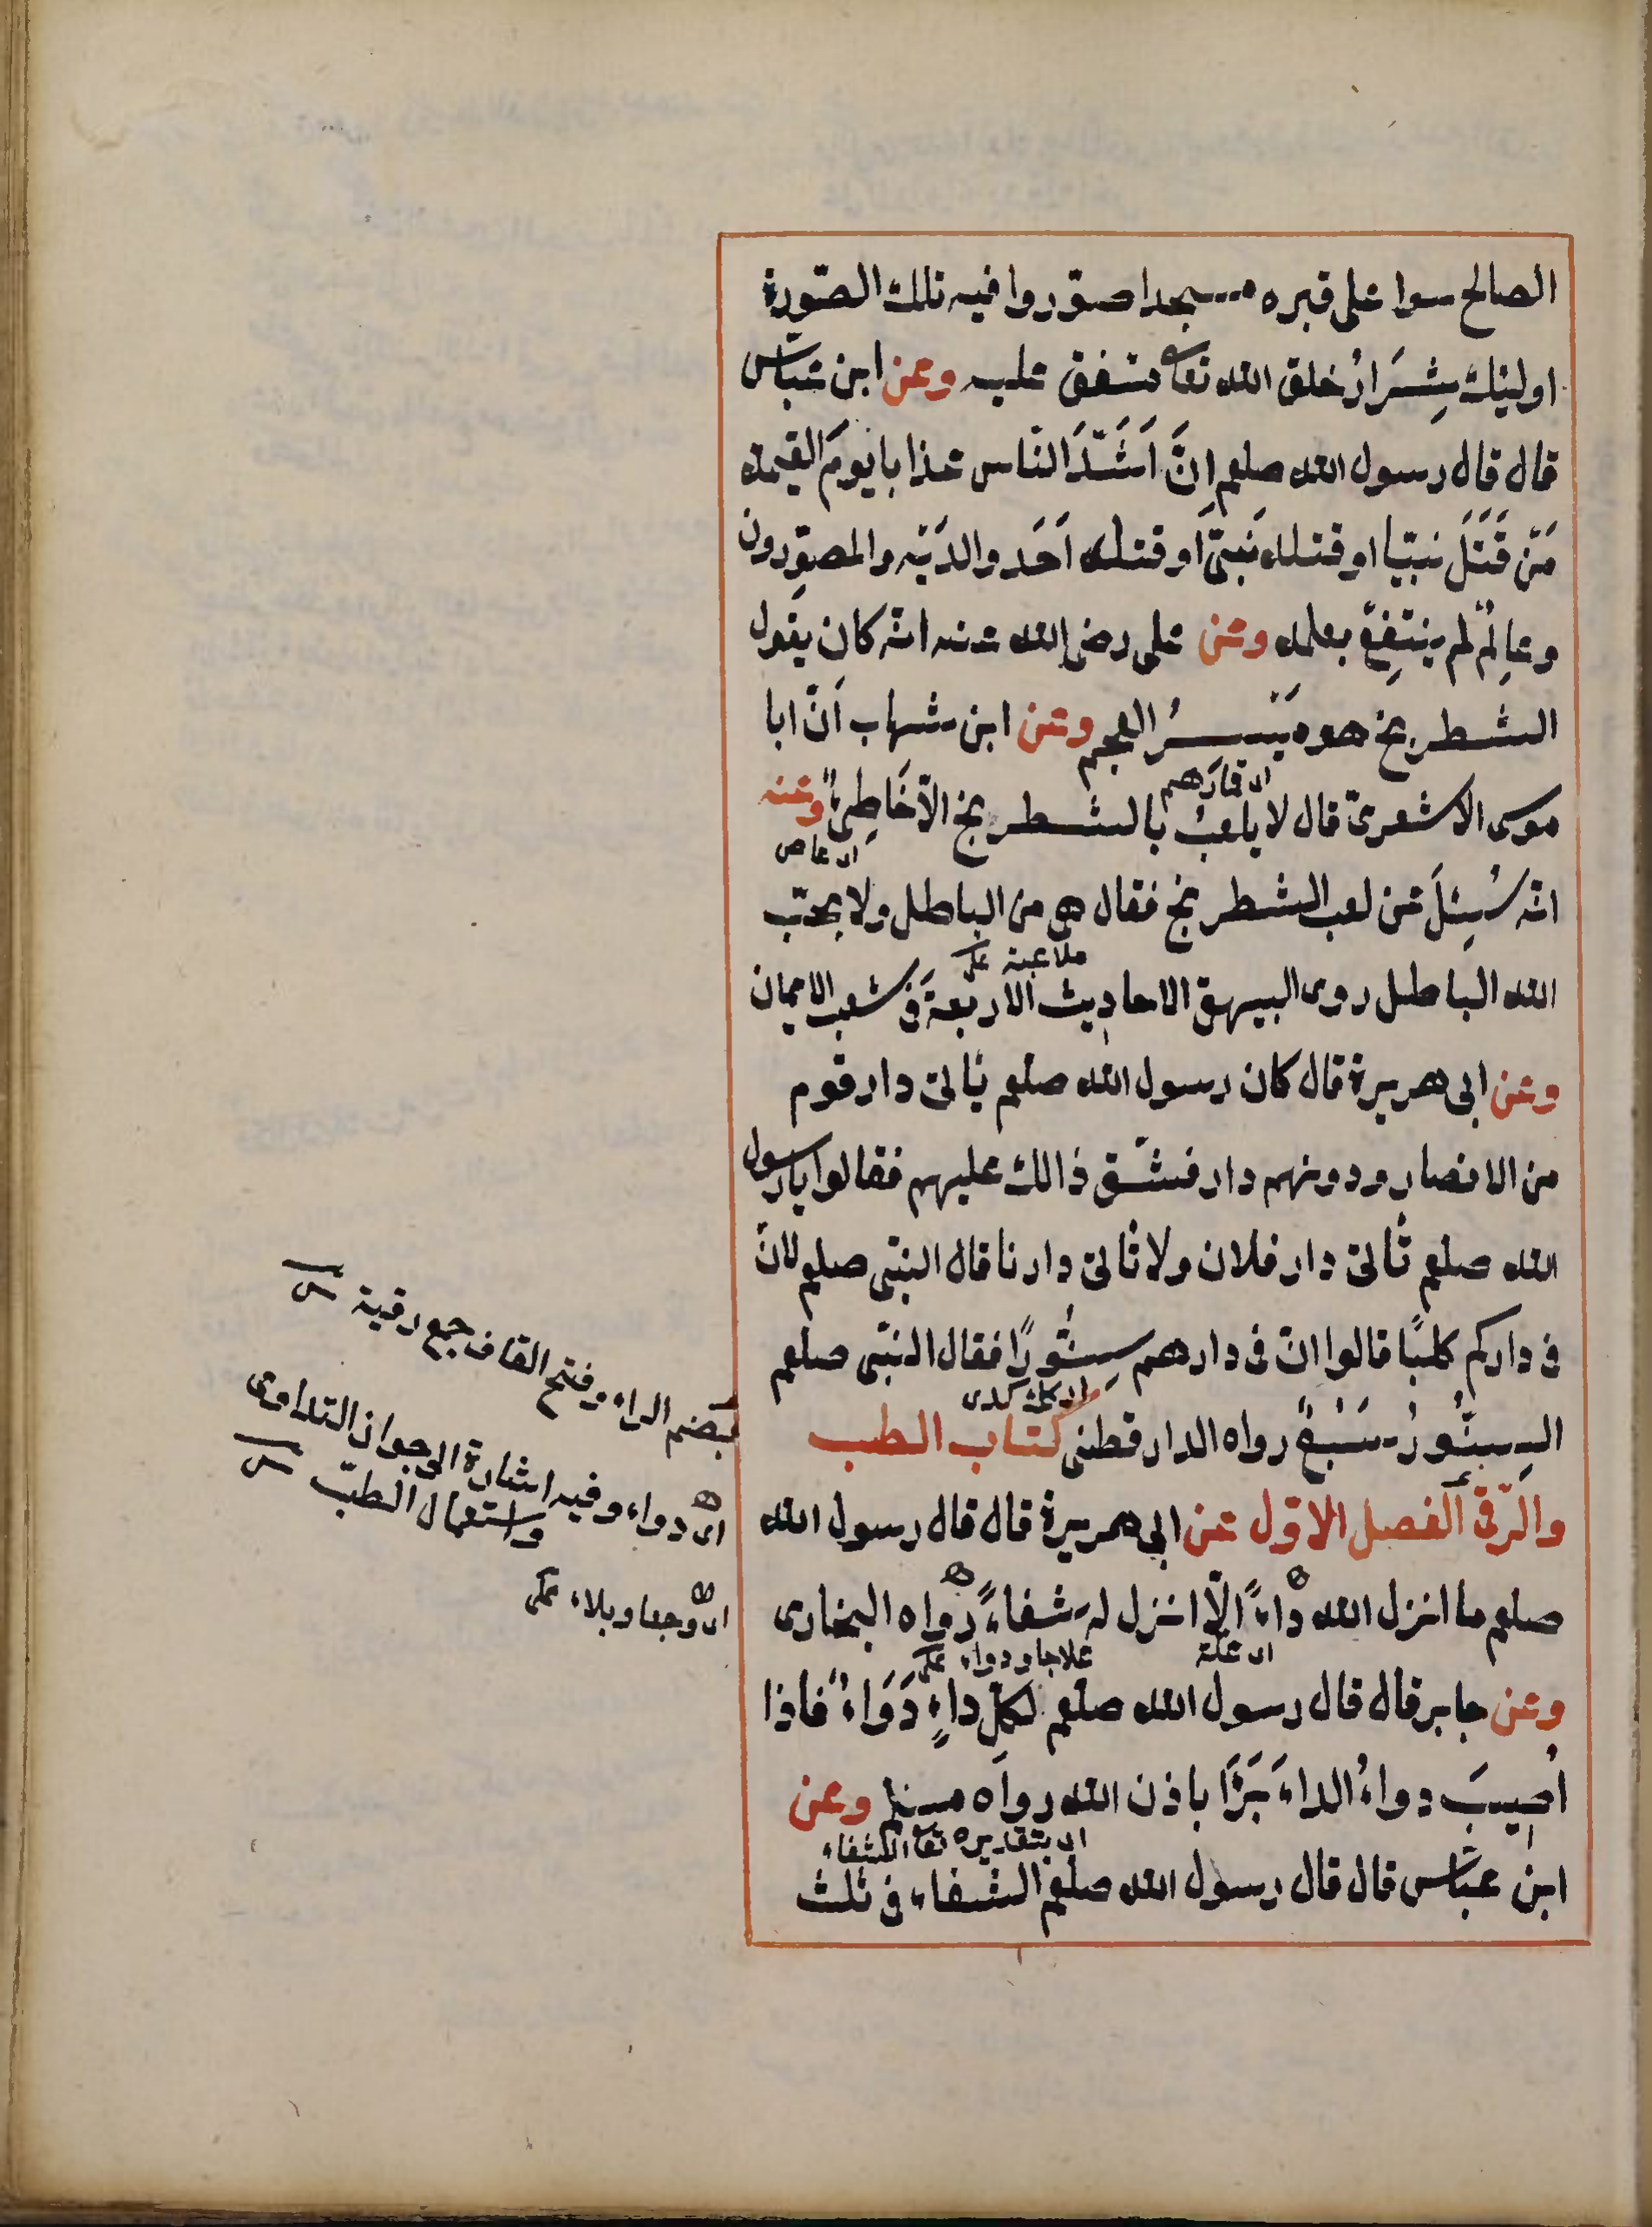 الصالح سوا على قبره مسجدا صوّروا فيه تلك الصّورة
اوليئك شِرَارُ خلق الله تعا متفق عليه وعن ابن عبّاس
قال قال رسول الله صلعم اِنَّ اَشَدَّ النّاس عذابا يومَ القيمة
مَنْ قَتَلَ نبيّا او قتله نَبىّ او قتله اَحَد والدَيْه والمصوِّرون
وعالِمٌ لم ينتفِعْ بعلمه وعن على رضى الله عنه انّه كان يقول
الشطرنج هو مَيْسِرُ العجم وعن ابن شهاب اَنّ ابا
اى قمارهم
موسى الاشعرىّ قال لا يلعبُ بالشطرنج الاّ خَاطِئٌ وعنه
اى عاص
انّه سُئِلَ عن لعب الشطرنج فقال هى من الباطل ولا يحبّ
ملاعبة على
الله الباطل روى البيهقى الاحاديث الاربعةَ فى شعب الايمان
وعن ابى هريرة قال كان رسول الله صلعم يأتى دار قوم
من الانصار ودونهم دار فشّق ذالك عليهم فقالوا يا رسول
الله صلعم تأتى دار فلان ولا تأتى دارنا قال النبّى صلعم لانّ
فى داركم كلبًا قالوا انّ فى دارهم سِنّورًا فقال النبّى صلعم
السِنَّورُ سَبْعٌ رواه الدارقطنى كتاب الطب
والرّقى الفصل الاوّل عن ابى هريرة قال قال رسول الله
صلعم ما انزل الله داءً الاّ انزل له شفاءً رواه البخارى
اى علّة
علاجا ودواء على
وعن جابر قال قال رسول الله صلعم لكلّ داءٍ دَوَاءٌ فاذا
اُصيبَ دواءُ الداءَ بَرَأ باذن الله رواه مسلم وعن
اى بتقديره تعا الشفاء
ابن عبّاس قال قال رسول الله صلعم الشفاء فى ثلث
بضم الراء وفتح القاف جمع رقية
اى دواء وفيه اشارة الى جواز التداوى
واستعمال الطبّ
اى وجعا وبلاء على